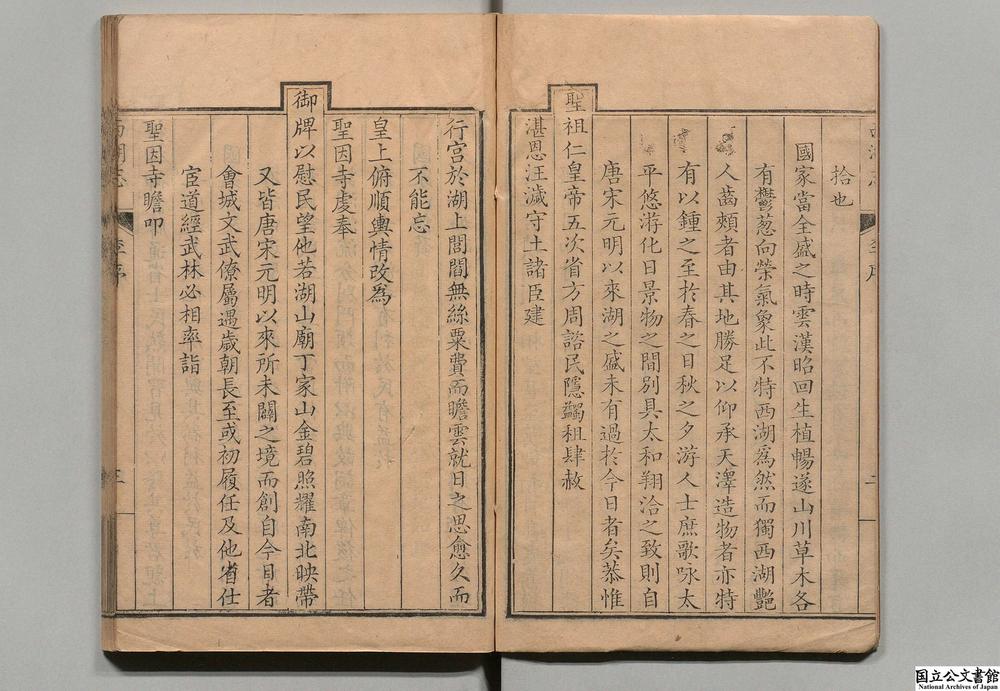 拾也
國家當全盛之時雲漢昭回生植暢遂山川草木各
有鬱葱向榮氣象此不特西湖爲然而獨西湖豔
人齒頰者由其地勝足以仰承天澤造物者亦特
有以鍾之至於春之日秋之夕游人士庶歌咏太
平悠游化日景物之間別具太和翔洽之致則自
唐宋元明以來湖之盛未有過於今日者矣恭惟
聖祖仁皇帝五次省方周諮民隱蠲租肆赦
湛恩汪濊守土諸臣建
行宮於湖上閭閻無絲粟費而瞻雲就日之思愈久而
不能忘
皇上俯順輿情改爲
聖因寺虔奉
御牌以慰民望他若湖山廟丁家山金碧照耀南北映帶
又皆唐宋元明以來所未闢之境而創自今日者
會城文武僚屬遇歲朝長至或初履任及他省仕
宦道經武林必相率詣
聖因寺瞻叩
西湖志
李序
三
国立公文書館
National Archives of Japan